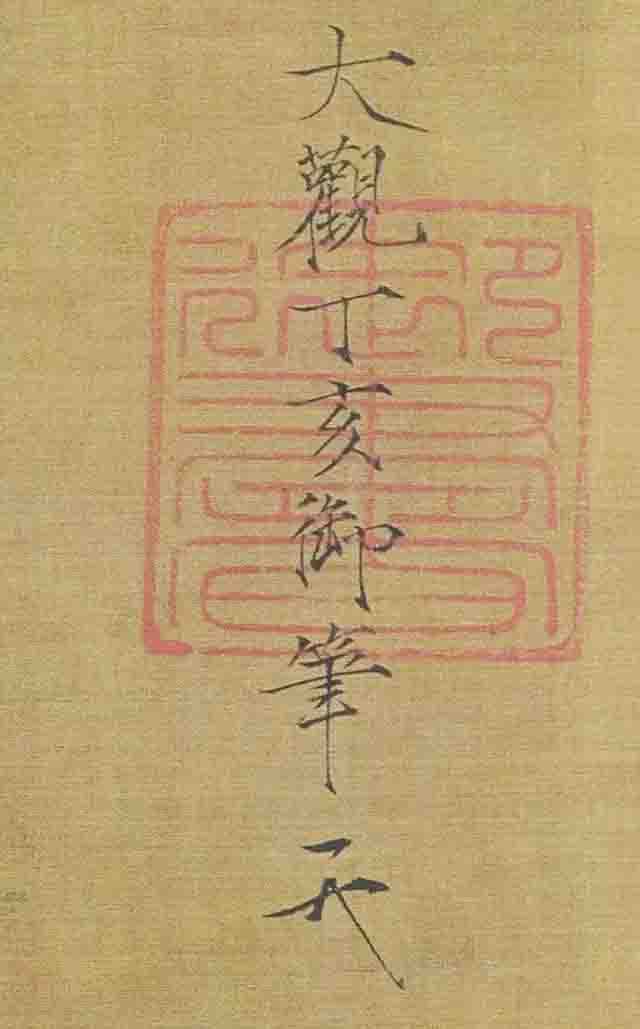 大觀丁亥御筆天